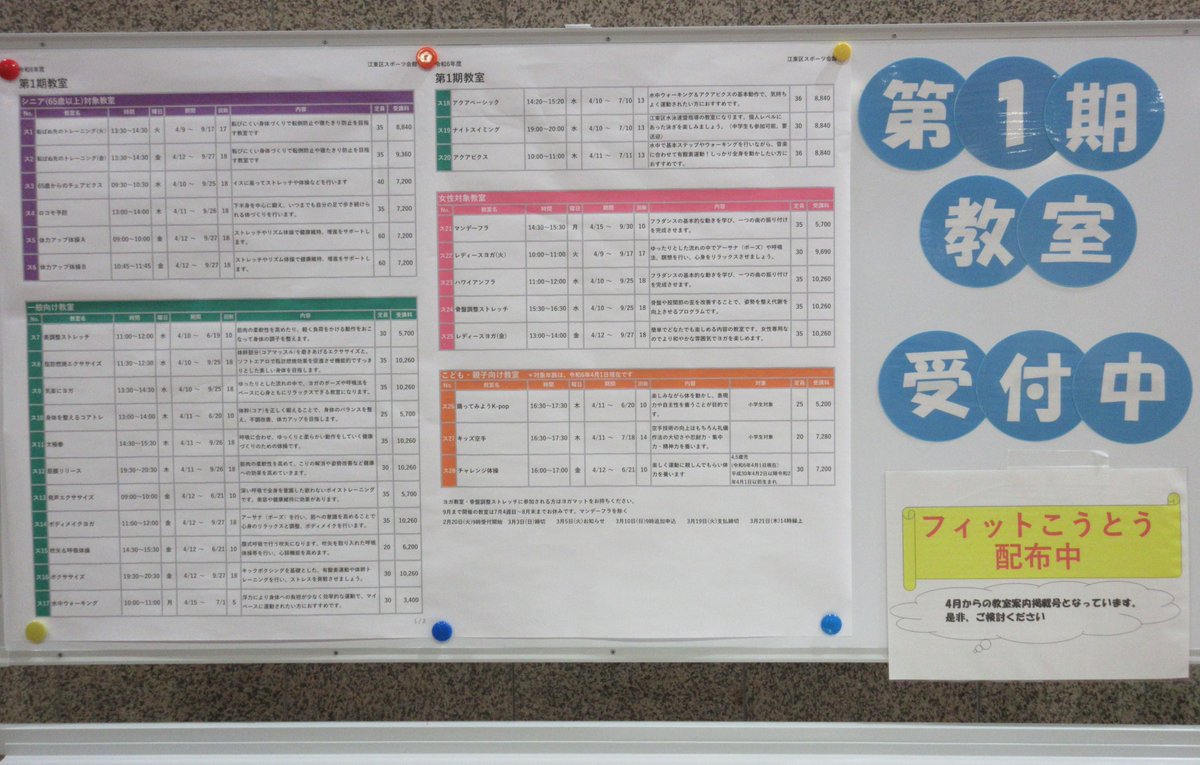 令和6年度
第1期教室
シニア(65歳以上)対象教室
No. 教室名 時間 曜日 期間 回数 内容 定員 受講料
ス1 転ばぬ先のトレーニング(火) 13:30~14:30 火 4/9 ~ 9/17 17 転びにくい身体づくりで転倒防止や寝たきり防止を目指す教室です 35 8,840
ス2 転ばぬ先のトレーニング(金) 13:30~14:30 金 4/12 ~ 9/27 18 転びにくい身体づくりで転倒防止や寝たきり防止を目指す教室です 35 9,360
ス3 65歳からのチェアビクス 09:30~10:30 水 4/10 ~ 9/25 18 イスに座ってストレッチや体操などを行います 40 7,200
ス4 ロコモ予防 13:00~14:00 木 4/11 ~ 9/26 18 下半身を中心に鍛え、いつまでも自分の足で歩き続けられる体づくりを行います。 35 7,200
ス5 体力アップ体操A 09:00~10:00 金 4/12 ~ 9/27 18 ストレッチやリズム体操で健康維持、増進をサポートします。 60 7,200
ス6 体力アップ体操B 10:45~11:45 金 4/12 ~ 9/27 18 ストレッチやリズム体操で健康維持、増進をサポートします。 60 7,200
一般向け教室
No. 教室名 時間 曜日 期間 回数 内容 定員 受講料
ス7 美調整ストレッチ 11:00~12:00 水 4/10 ~ 6/19 10 筋肉の柔軟性を高めたり、軽く負荷をかける動作をおこなって身体の調子を整えます。 30 5,700
ス8 脂肪燃焼エクササイズ 11:30~12:30 水 4/10 ~ 9/25 18 体幹部分(コアマッスル)を動きあげるエクササイズと、ソフトエアロで脂肪燃焼効果を促進させ機能的ですっきりとした美しい身体を目指します。 35 10,260
ス9 気楽にヨガ 13:30~14:30 水 4/10 ~ 9/25 18 ゆったりとした流れの中で、ヨガのポーズや呼吸法をベースに心身ともにリラックスできる教室になります。 35 10,260
ス10 身体を整えるコアトレ 13:00~14:00 木 4/11 ~ 6/20 10 体幹(コア)を正しく鍛えることで、身体のバランスを整え、不調改善、体力アップを目指します。 25 5,700
ス11 太極拳 14:30~15:30 木 4/11 ~ 9/26 18 呼吸に合わせ、ゆっくりと柔らかい動作をしていく健康づくりのための体操です。 35 10,260
ス12 筋膜リリース 19:30~20:30 木 4/11 ~ 9/26 18 筋肉の柔軟性を高めて、こりの解消や姿勢改善など健康への効果を高めていきます。 30 10,260
ス13 発声エクササイズ 09:00~10:00 金 4/12 ~ 6/21 10 深い呼吸で全身を意識した歌わないボイストレーニングです。美容や健康維持に効果があります。 35 5,700
ス14 ボディメイクヨガ 11:00~12:00 金 4/12 ~ 9/27 18 アーサナ(ポーズ)を行い、筋への意識を高めることで心身のリラックスと調整、ボディメイクを行います。 35 10,260
ス15 吹矢&呼吸体操 14:30~15:30 金 4/12 ~ 6/21 10 腹式呼吸で行う吹矢になります。吹矢を取り入れた呼吸体操等を行い、心肺機能を高めます。 20 6,200
ス16 ボクササイズ 19:30~20:30 金 4/12 ~ 9/27 18 キックボクシングを基礎とした、有酸素運動や体幹トレーニングを行い、ストレスを発散させましょう。 30 10,260
ス17 水中ウォーキング 10:00~11:00 月 4/15 ~ 7/1 5 浮力により身体への負担が少なく効率的な運動で、マイペースに運動されたい方におすすめです。 30 3,400
1/2
江東区スポーツ会館
令和6年度
第1期教室
江東区スポーツ会館
ス18 アクアベーシック 14:20~15:20 水 4/10 ~ 7/10 13 水中ウォーキング&アクアビクスの基本動作で、気持ちよく運動されたい方におすすめです。 36 8,840
ス19 ナイトスイミング 19:00~20:00 水 4/10 ~ 7/10 13 江東区水泳連盟指導の教室になります。個人レベルにあった泳ぎを楽しみましょう。(中学生も参加可能、要送迎) 30 8,840
ス20 アクアビクス 10:00~11:00 木 4/11 ~ 7/11 13 水中で基本ステップやウォーキングを行いながら、音楽に合わせて有酸素運動!しっかり全身を動かしたい方におすすめです。 36 8,840
女性対象教室
No. 教室名 時間 曜日 期間 回数 内容 定員 受講料
ス21 マンデーフラ 14:30~15:30 月 4/15 ~ 9/30 10 フラダンスの基本的な動きを学び、一つの曲の振り付けを完成させます。 35 5,700
ス22 レディースヨガ(火) 10:00~11:00 火 4/9 ~ 9/17 17 ゆったりとした流れの中でアーサナ(ポーズ)や呼吸法、瞑想を行い、心身をリラックスしましょう。 30 9,690
ス23 ハワイアンフラ 11:00~12:00 水 4/10 ~ 9/25 18 フラダンスの基本的な動きを学び、一つの曲の振り付けを完成させます。 35 10,260
ス24 骨盤調整ストレッチ 15:30~16:30 水 4/10 ~ 9/25 18 骨盤や股関節の歪を改善することで、姿勢を整え代謝を向上させるプログラムです。 35 10,260
ス25 レディースヨガ(金) 13:00~14:00 金 4/12 ~ 9/27 18 簡単でどなたでも楽しめる内容の教室です。女性専用なのでより和やかな雰囲気でヨガを楽しめます。 30 10,260
こども・親子向け教室 *対象年齢は、令和6年4月1日現在です
No. 教室名 時間 曜日 期間 回数 内容 対象 定員 受講料
ス26 踊ってみようK-pop 16:30~17:30 木 4/11 ~ 6/20 10 楽しみながら体を動かし、表現力や自主性を養うことが目的です。 小学生対象 25 5,200
ス27 キッズ空手 16:30~17:30 木 4/11 ~ 7/18 14 空手技術の向上はもちろん礼儀作法の大切さや忍耐力・集中力・精神力を養います。 小学生対象 20 7,280
ス28 チャレンジ体操 16:00~17:00 金 4/12 ~ 6/21 10 楽しく運動に親しんでもらい体力を養います 4,5歳児(令和6年4月1日現在)平成30年4月2日以降令和2年4月1日以前生まれ 30 7,200
ヨガ教室・骨盤調整ストレッチに参加される方はヨガマットをお持ちください。
9月まで開催の教室は7月4週目~8月末までお休みです。マンデーフラを除く
2月20日(火)9時受付開始 3月3日(日)締切 3月5日(火)お知らせ 3月10日(日)9時追加申込 3月19日(火)支払締切 3月21日(木)14時繰上
第1期
教室
受付中
フィットこうとう
配布中
4月からの教室案内掲載号となっています、
是非、ご検討ください